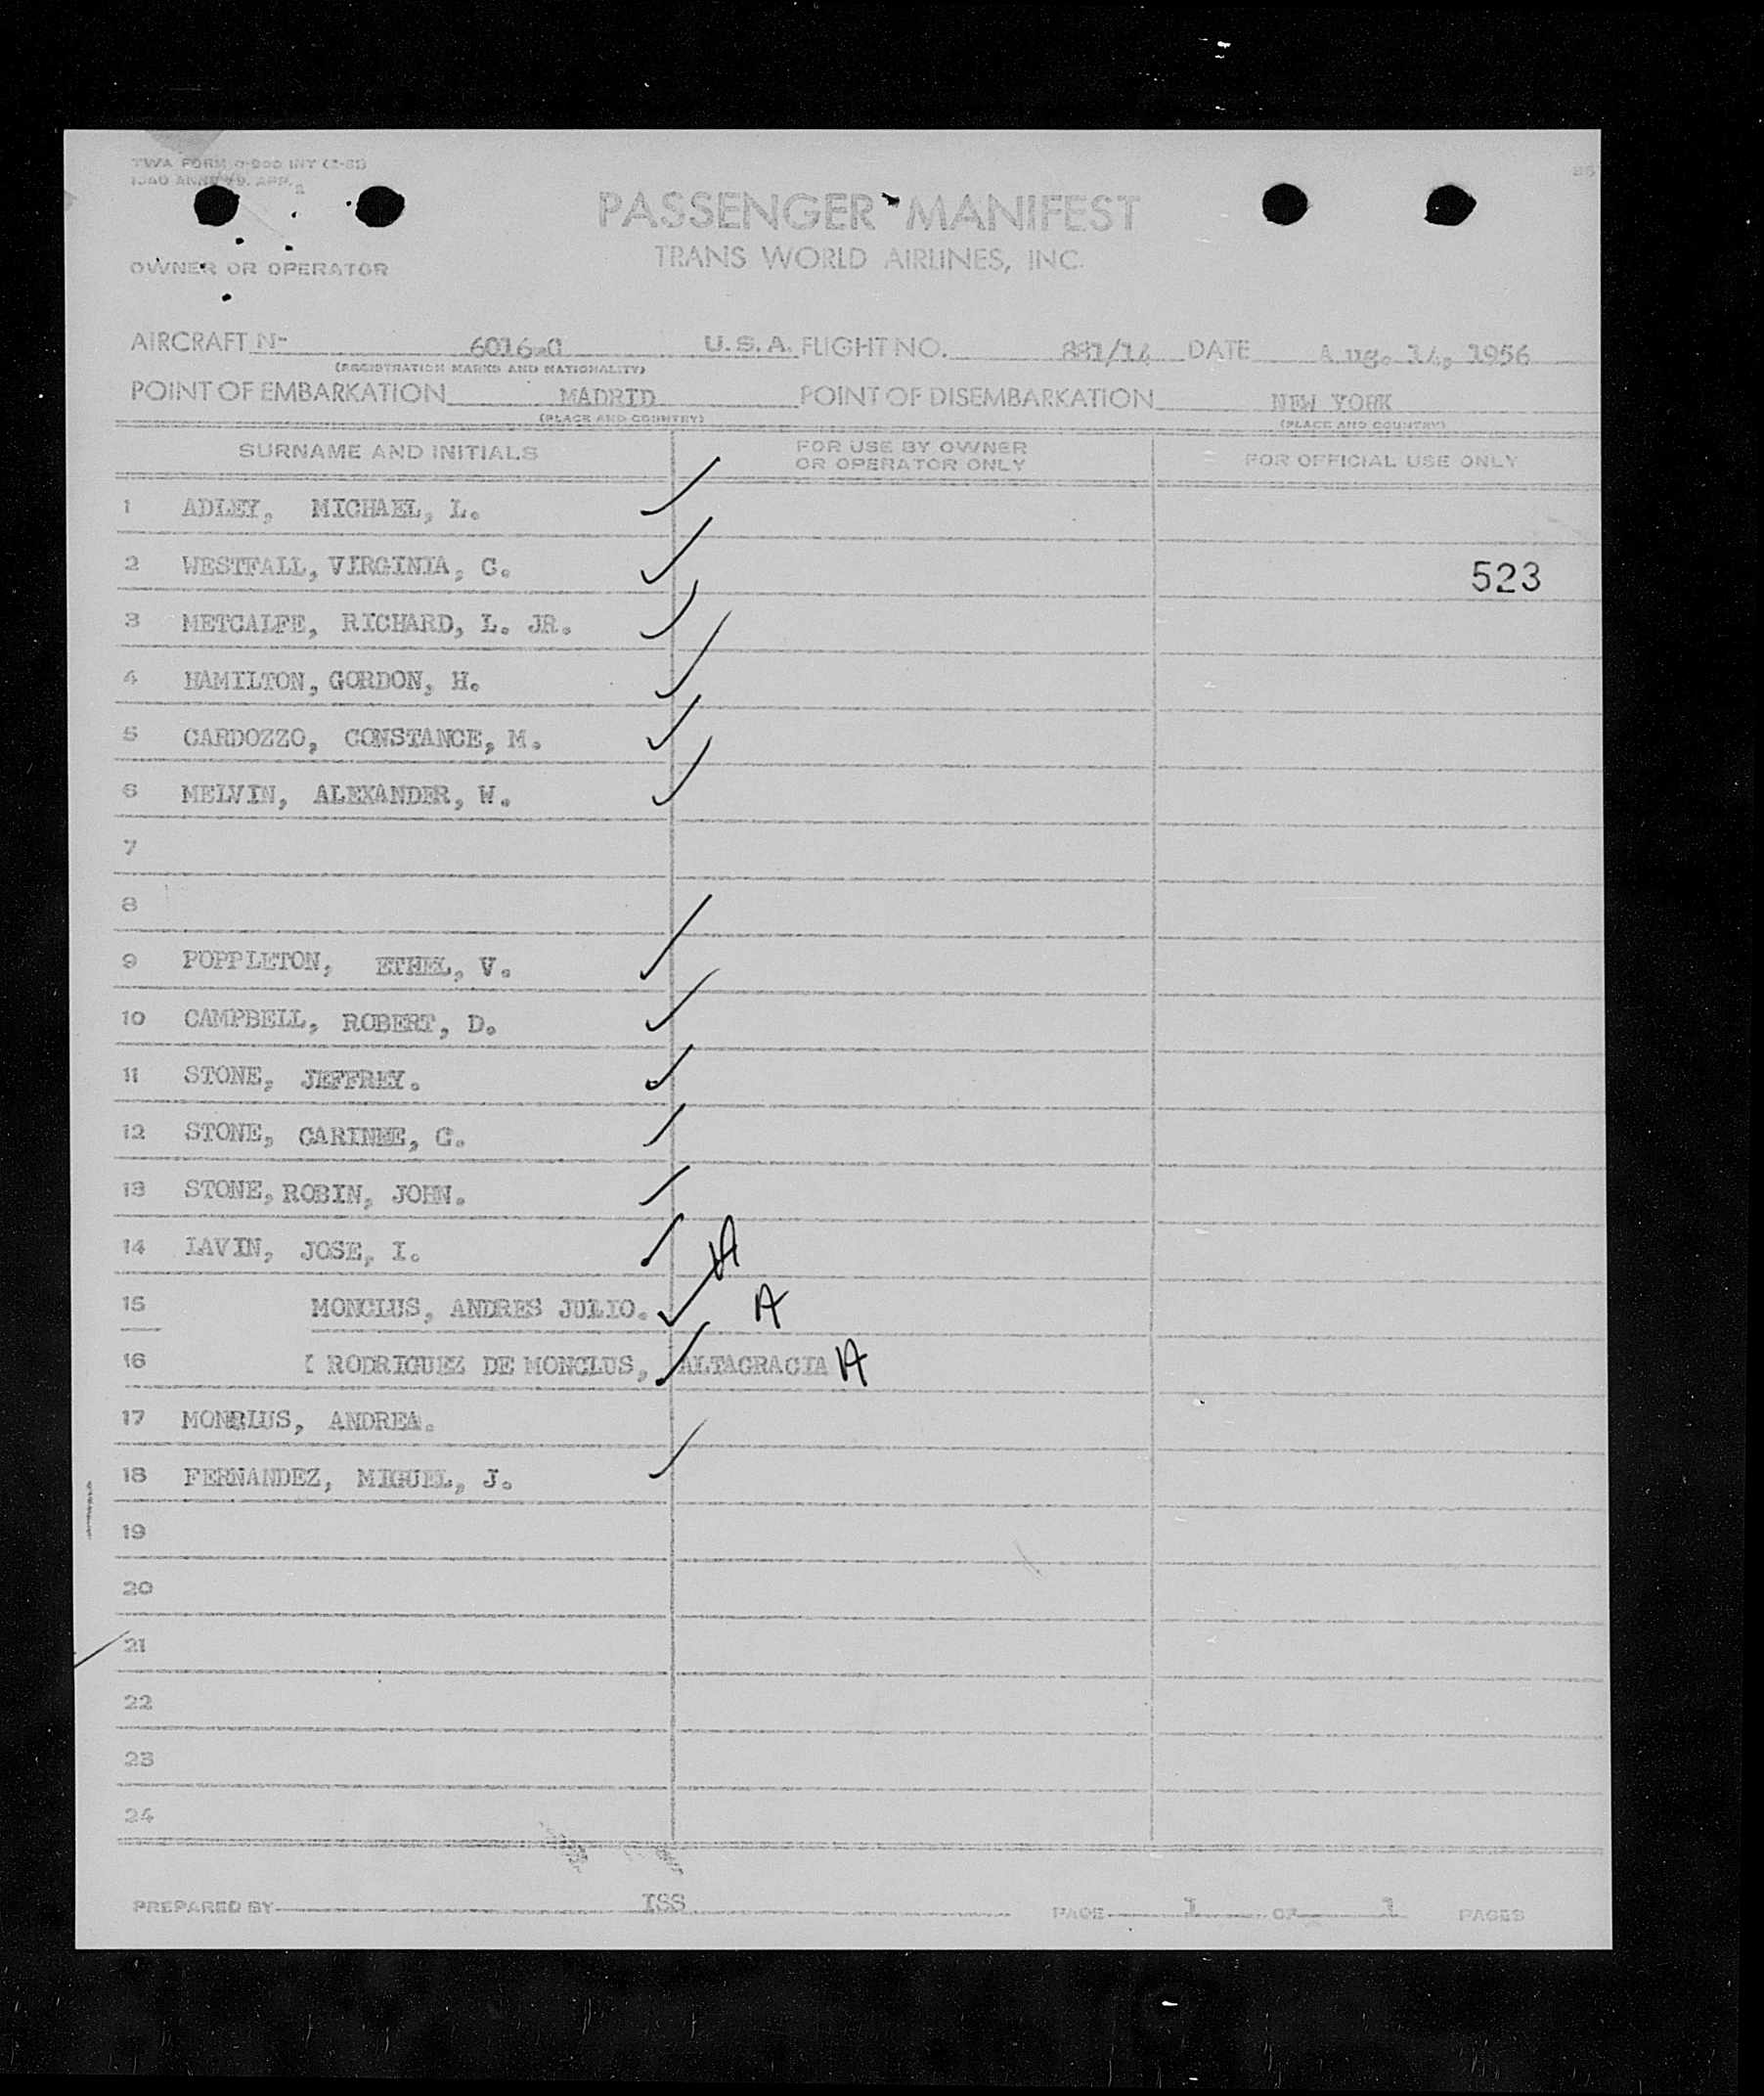 TWA FORM O-900 INT (2-51)
PASSENGER MANIFEST
TRANS WORLD AIRLINES, INC.
OWNER OR OPERATOR
AIRCRAFT N- 6016-C U.S.A. FLIGHT NO. 881/14 DATE Aug. 14, 1956
(REGISTRATION MARKS AND NATIONALITY)
POINT OF EMBARKATION MADRID POINT OF DISEMBARKATION NEW YORK
(PLACE AND COUNTRY) (PLACE AND COUNTRY)
SURNAME AND INITIALS FOR USE BY OWNER OR OPERATOR ONLY FOR OFFICIAL USE ONLY
1 ADLEY, MICHAEL, L.
2 WESTFALL, VIRGINIA, C. 523
3 METCALFE, RICHARD, L. JR.
4 HAMILTON, GORDON, H.
5 CARDOZZO, CONSTANCE, M.
6 MELVIN, ALEXANDER, W.
7
8
9 POPPLETON, ETHEL, V.
10 CAMPBELL, ROBERT, D.
11 STONE, JEFFREY.
12 STONE, CARINNE, G.
13 STONE, ROBIN, JOHN.
14 LAVIN, JOSE, I. A
15 MONCLUS, ANDRES JULIO. A
16 RODRIGUEZ DE MONCLUS, ALTAGRACIA A
17 MONCLUS, ANDREA.
18 FERNANDEZ, MIGUEL, J.
19
20
21
22
23
24
PREPARED BY ISS PAGE 1 OF 1 PAGES